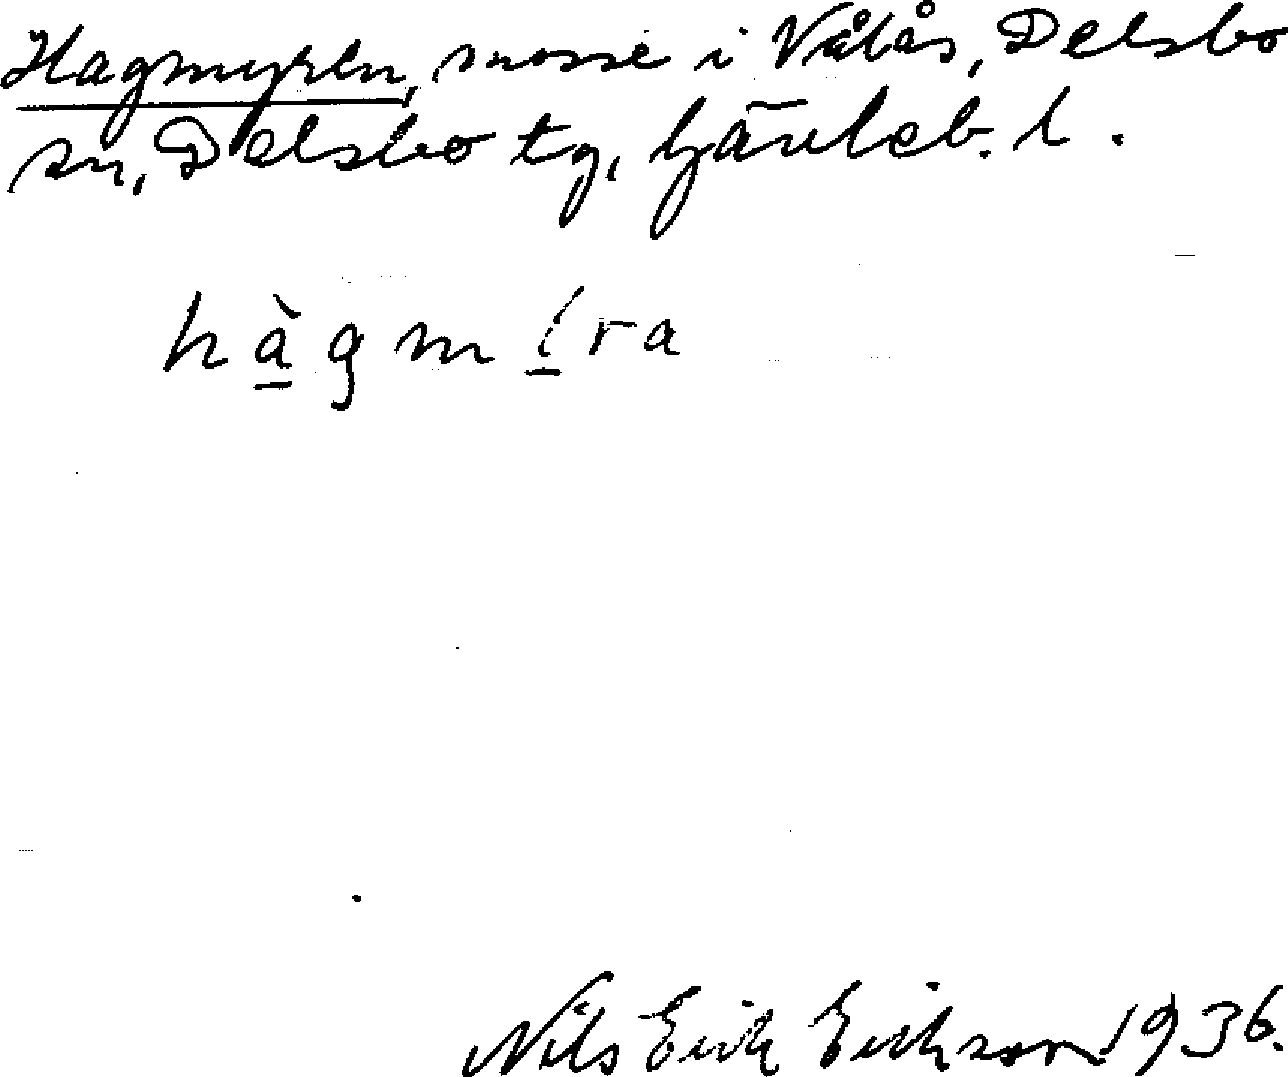 Hagmyren, mosse i Våtås, Delsbo
sn, Delsbo tg, Gävleb. l.
hàgmíra
Nils Erik Erikson 1936.